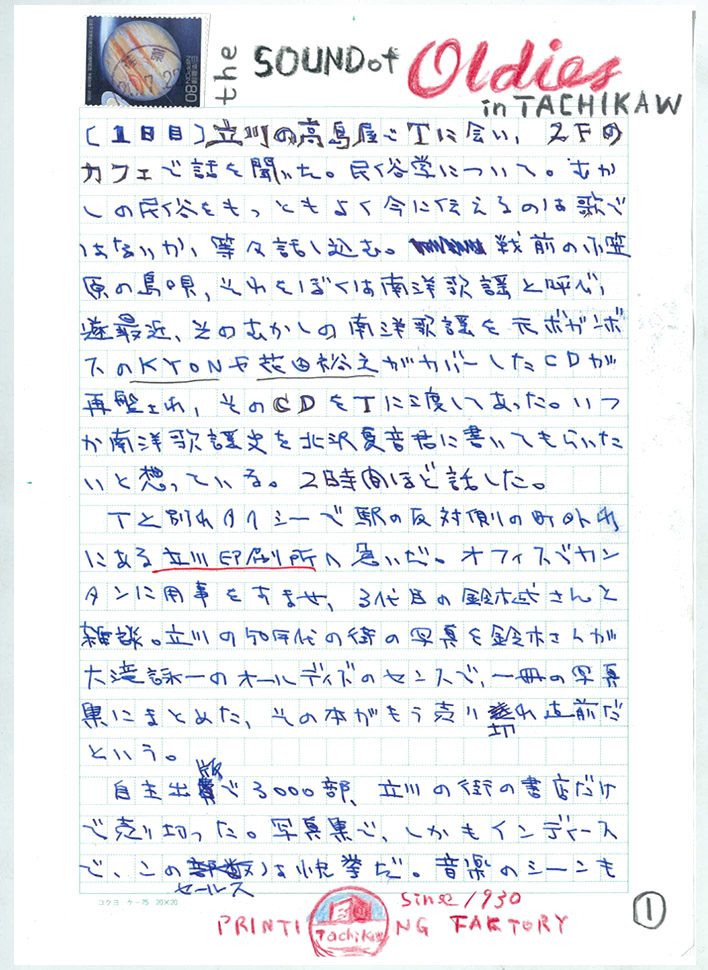 the SOUND of Oldies
in TACHIKAW
80
[1日目]立川の高島屋でTに会い、2Fの
カフェで話を聞いた。民俗学について。むか
しの民俗をもっともよく今に伝えるのは歌で
はないか、等々話し込む。戦前の小笠
原の島唄、それをぼくは南洋歌謡と呼び、
最近、そのむかしの南洋歌謡を元ボガンボ
スのKYONや花田裕之がカバーしたCDが
再盤され、そのCDをTに渡してあった。いつ
か南洋歌謡史を北沢夏音君に書いてもらいた
いと想っている。2時間ほど話した。
Tと別れタクシーで駅の反対側の町外れ
にある立川印刷所へ急いだ。オフィスでカン
タンに用事をすませ、3代目の鈴木武さんと
雑談。立川の50年代の街の写真を鈴木さんが
大滝詠一のオールディズのセンスで、一冊の写真
集にまとめた、その本がもう売り切れ直前だ
という。
自主出版で3000部、立川の街の書店だけ
で売り切った。写真集で、しかもインディース
で、このセールスは快挙だ。音楽のシーンも
コクヨ ケ-75 20×20
Since 1930
PRINTI Tachikaw NG FAKTORY
1